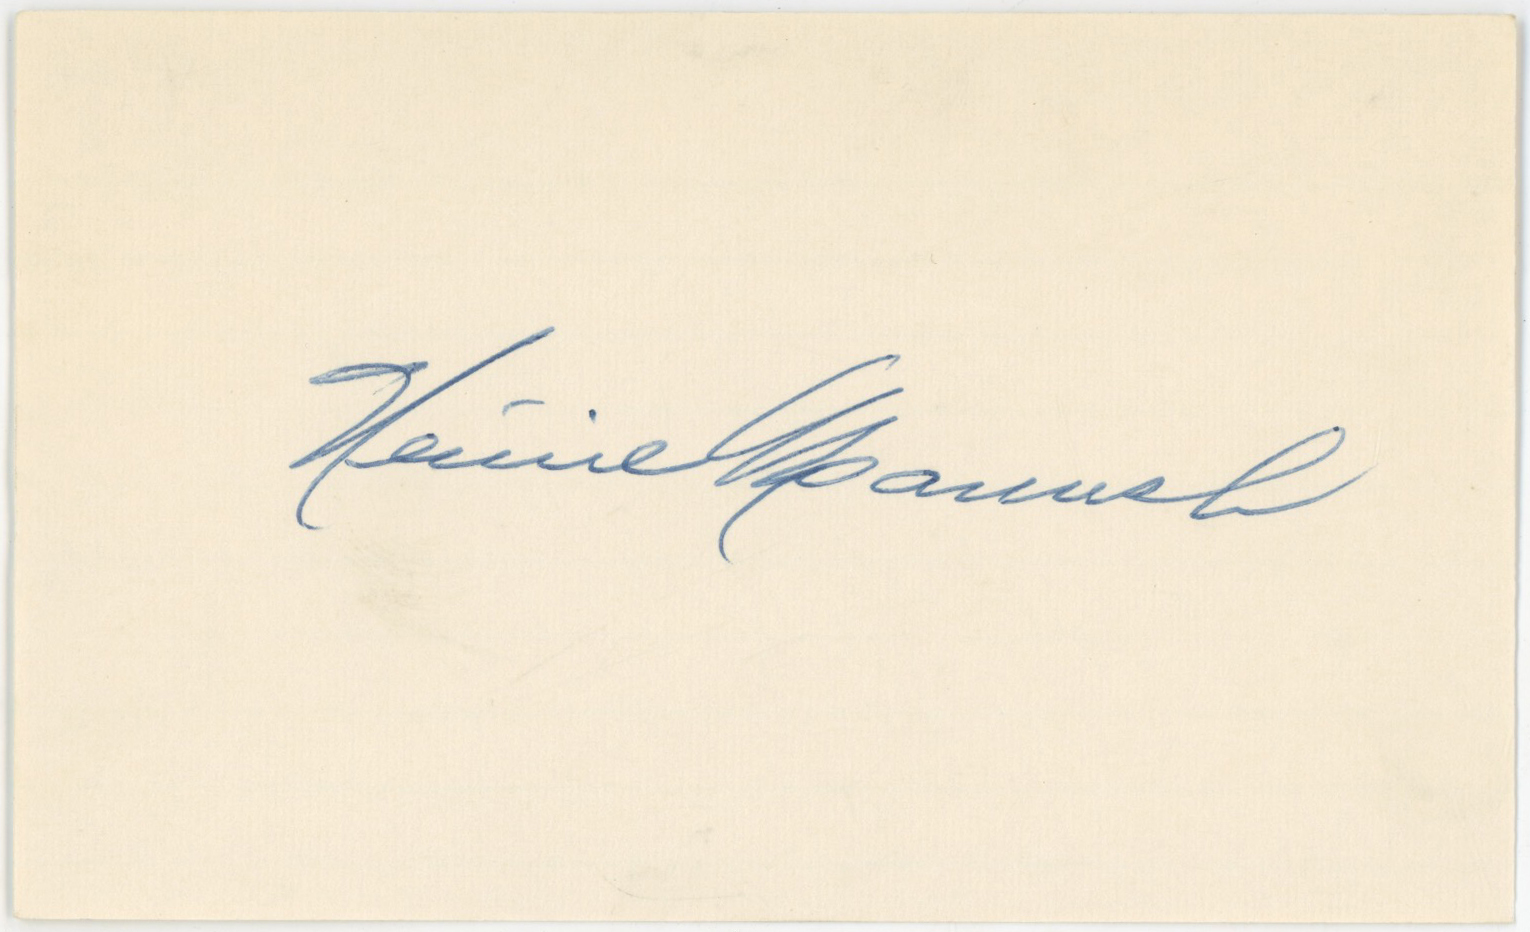 Heinie Manush